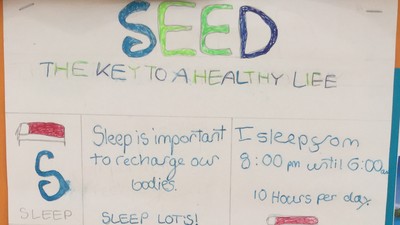 SEED
THE KEY TO A HEALTHY LIFE
S
SLEEP
Sleep is important
to recharge our
bodies.
SLEEP LOTS!
I sleep from
8:00 pm until 6:00am
10 Hours per day.